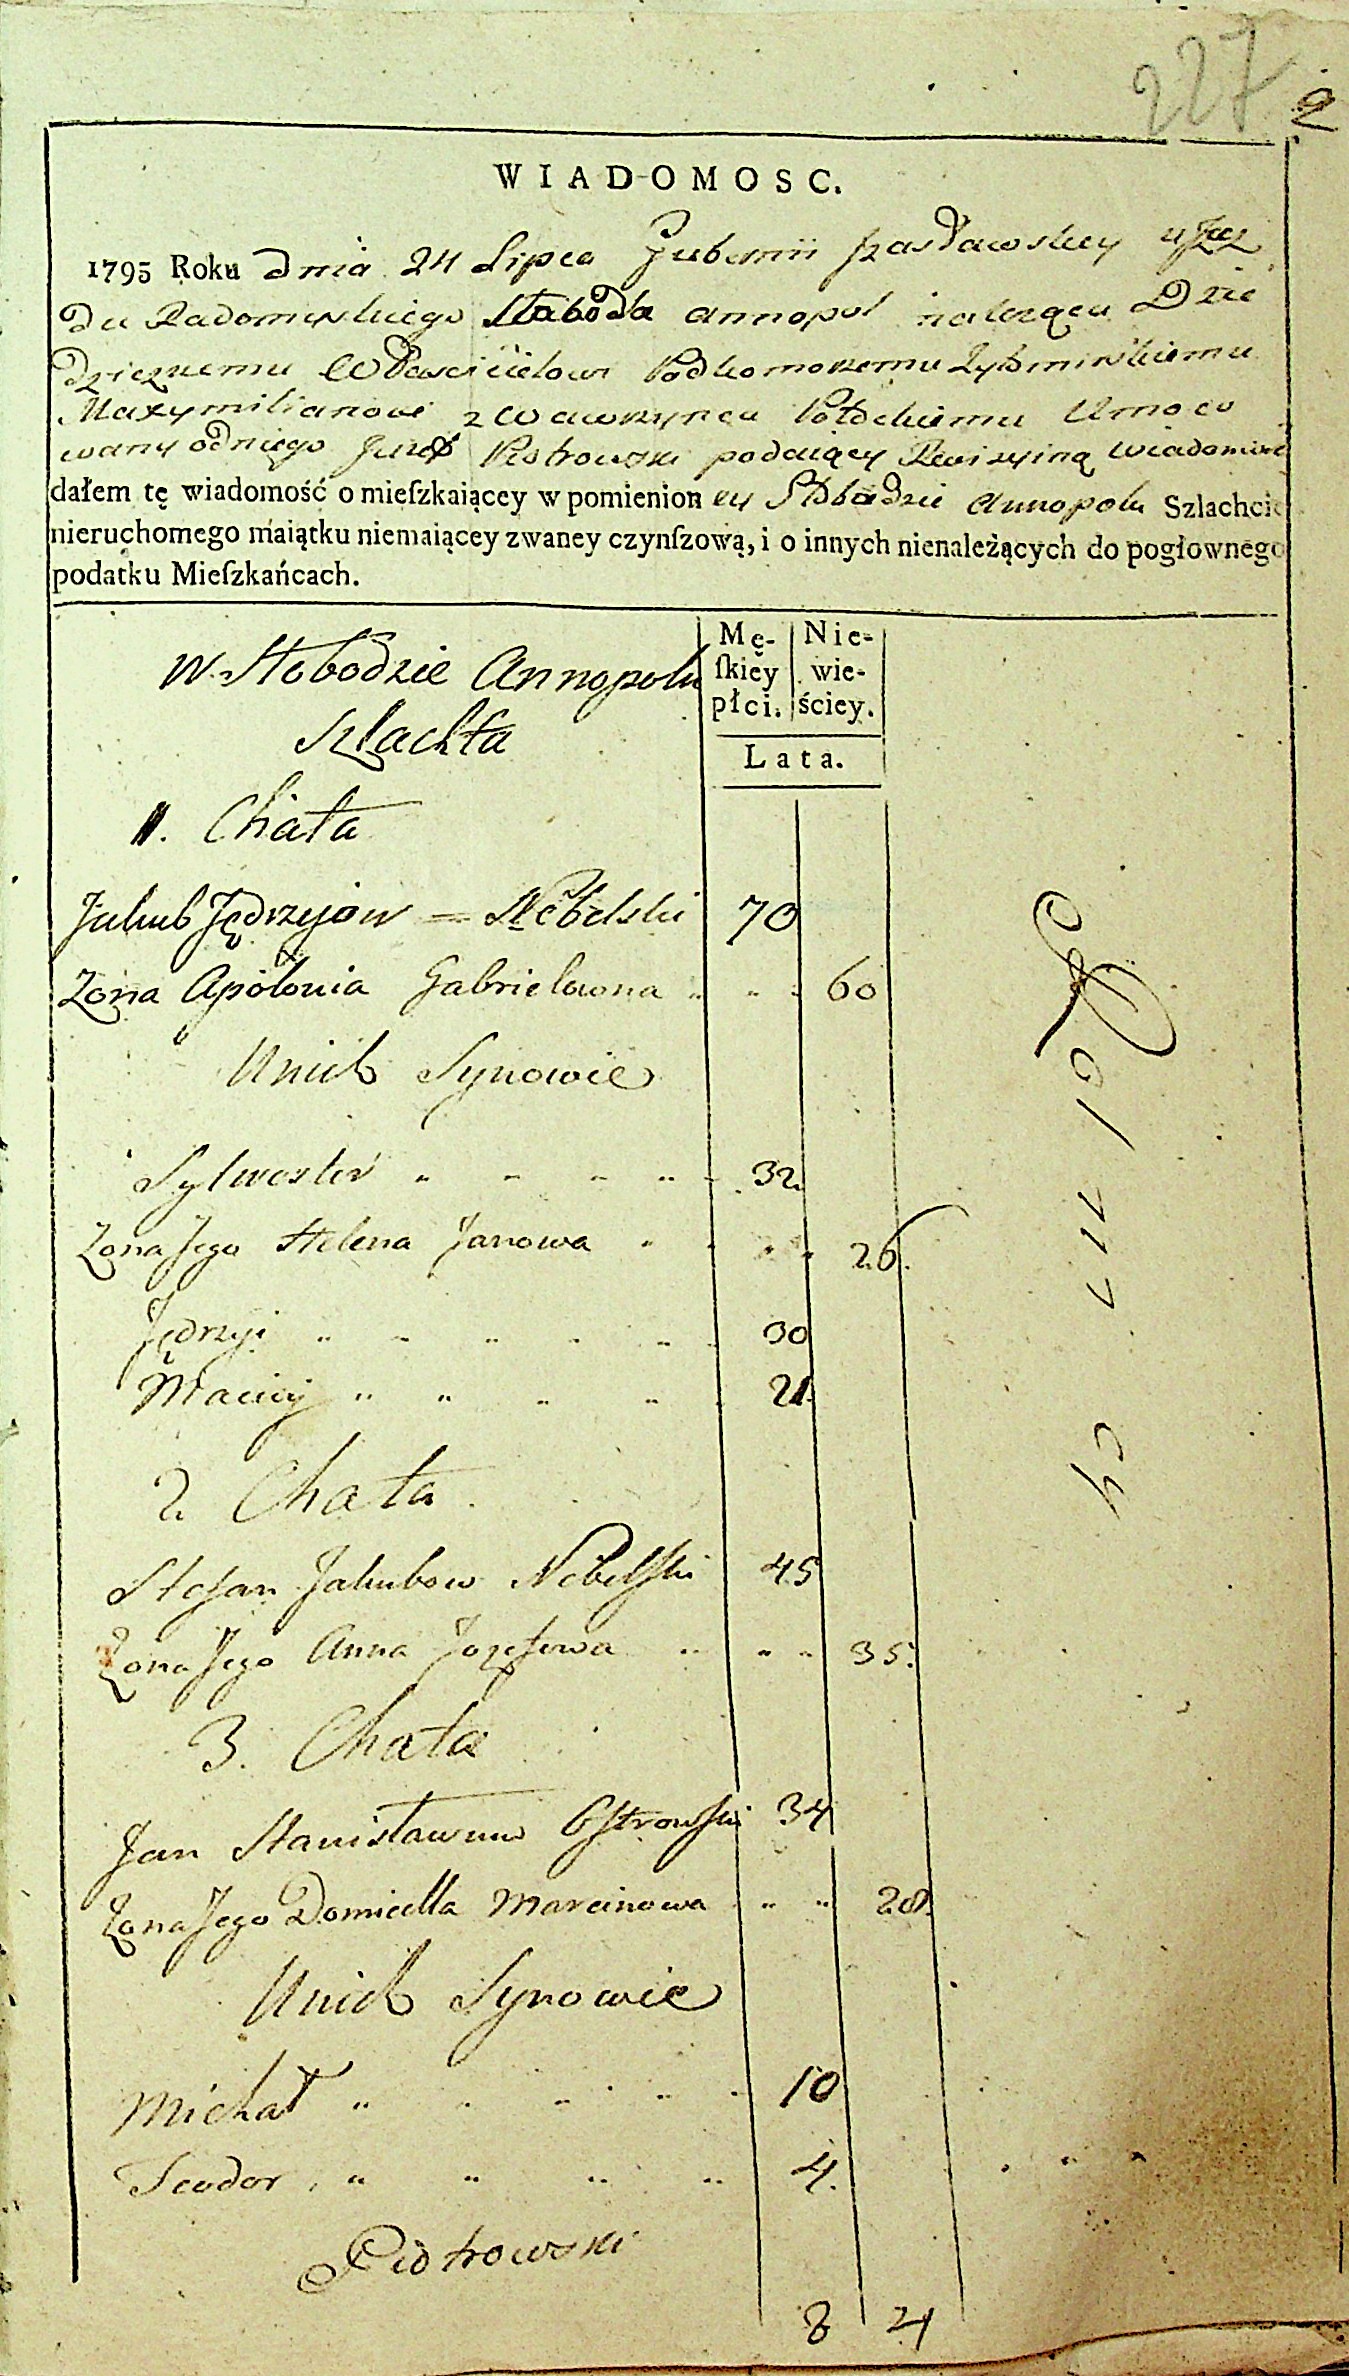 227
2
WIADOMOSC.
1795 Roku dnia 24 Lipca Gubernii Izasławskiey ujez
du Radomyslskiego Słaboda Annopol należąca Dzie
dzicznemu Właścicielowi Podkomorzemu Zytomirskiemu
Maxymilianowi z Wawrzynca Umoco
wany odniego Jozef Piotrowski podaiący Rewizyiną wiadomość
dałem tę wiadomość o mieſzkaiącey w pomienion ey Słobodzie Annopolu Szlachcie
nieruchomego maiątku niemaiącey zwaney czynſzową, i o innych nienależących do pogłownego
podatku Mieſzkańcach.
W Słobodzie Annopolu
Szlachta
Mę-
ſkiey
płci.
Nie-
wie-
ściey.
Lata.
1. Chata
Jakub Jędrzejow = Nebelski 70
Zona Apolonia Gabrielowna " " " 60
Unich Synowie
Sylwester " " " " " 32.
Zona Jego Helena Janowa " " " " 26.
Jędrzyi " " " " " " 30
Maciey " " " " " 21.
2. Chata
Stefan Jakubow Nebelſki 45
Zona Jego Anna Jozefowa " " " 35.
3. Chata
Jan Stanisławow Oſtrowſki 34
Zona Jego Domicella Marcinowa " " 28.
Unich Synowie
Michał " " " " " " 10
Teodor " " " " 4.
Piotrowski
8 4